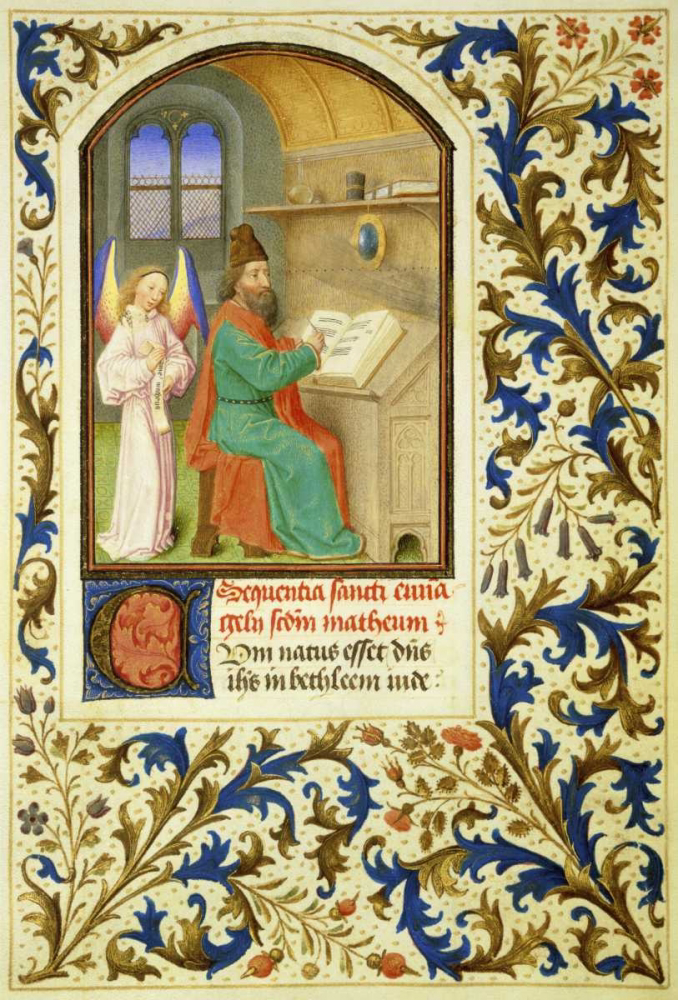 Sequentia sancti euua
gelij scdm matheum
Cum natus esset dns
ihs in bethleem iude